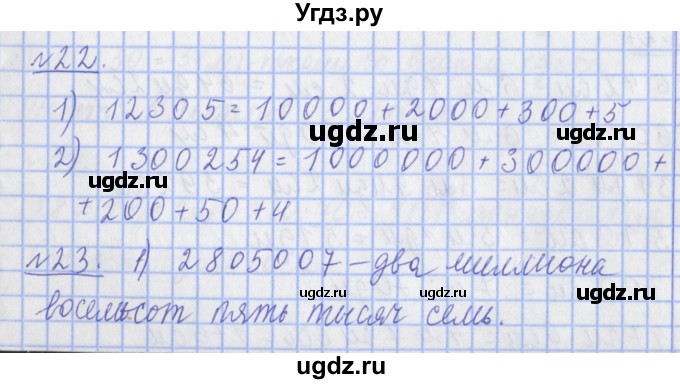 Угдз.ру
№22.
1) 12305=10000+2000+300+5
ugdz.ru ugdz.ru
2) 1300254=1000000+300000+
ugdz.ru ugdz.ru
+200+50+4
ugdz.ru
№23. 1) 2805007-два миллиона
ugdz.ru ugdz.ru ugdz.ru
восемьсот пять тысяч семь.
ugdz.ru
ugdz.ru